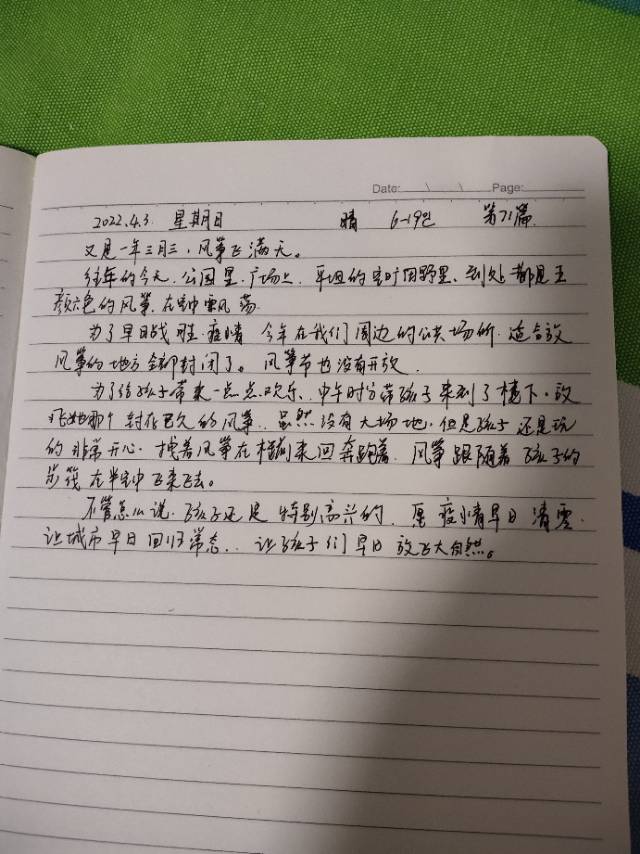 Date: Page:
2022.4.3. 星期日 晴 6-19℃ 第71篇
又是一年三月三，风筝飞满天。
往年的今天，公园里，广场上，平坦的空旷田野里，到处都是五
颜六色的风筝，在空中飘荡。
为了早日战胜疫情 今年在我们周边的公共场所，适合放
风筝的地方全部封闭了。风筝节也没有开放。
为了给孩子带来一点点欢乐，中午时分带孩子来到了楼下，放
飞她那个封存已久的风筝。虽然没有大场地，但是孩子还是玩
的非常开心，拽着风筝在楼前来回奔跑着，风筝跟随着孩子的
步筏在半空中飞来飞去。
不管怎么说，孩子还是特别高兴的，愿疫情早日清零，
让城市早日回归常态，让孩子们早日放飞大自然。